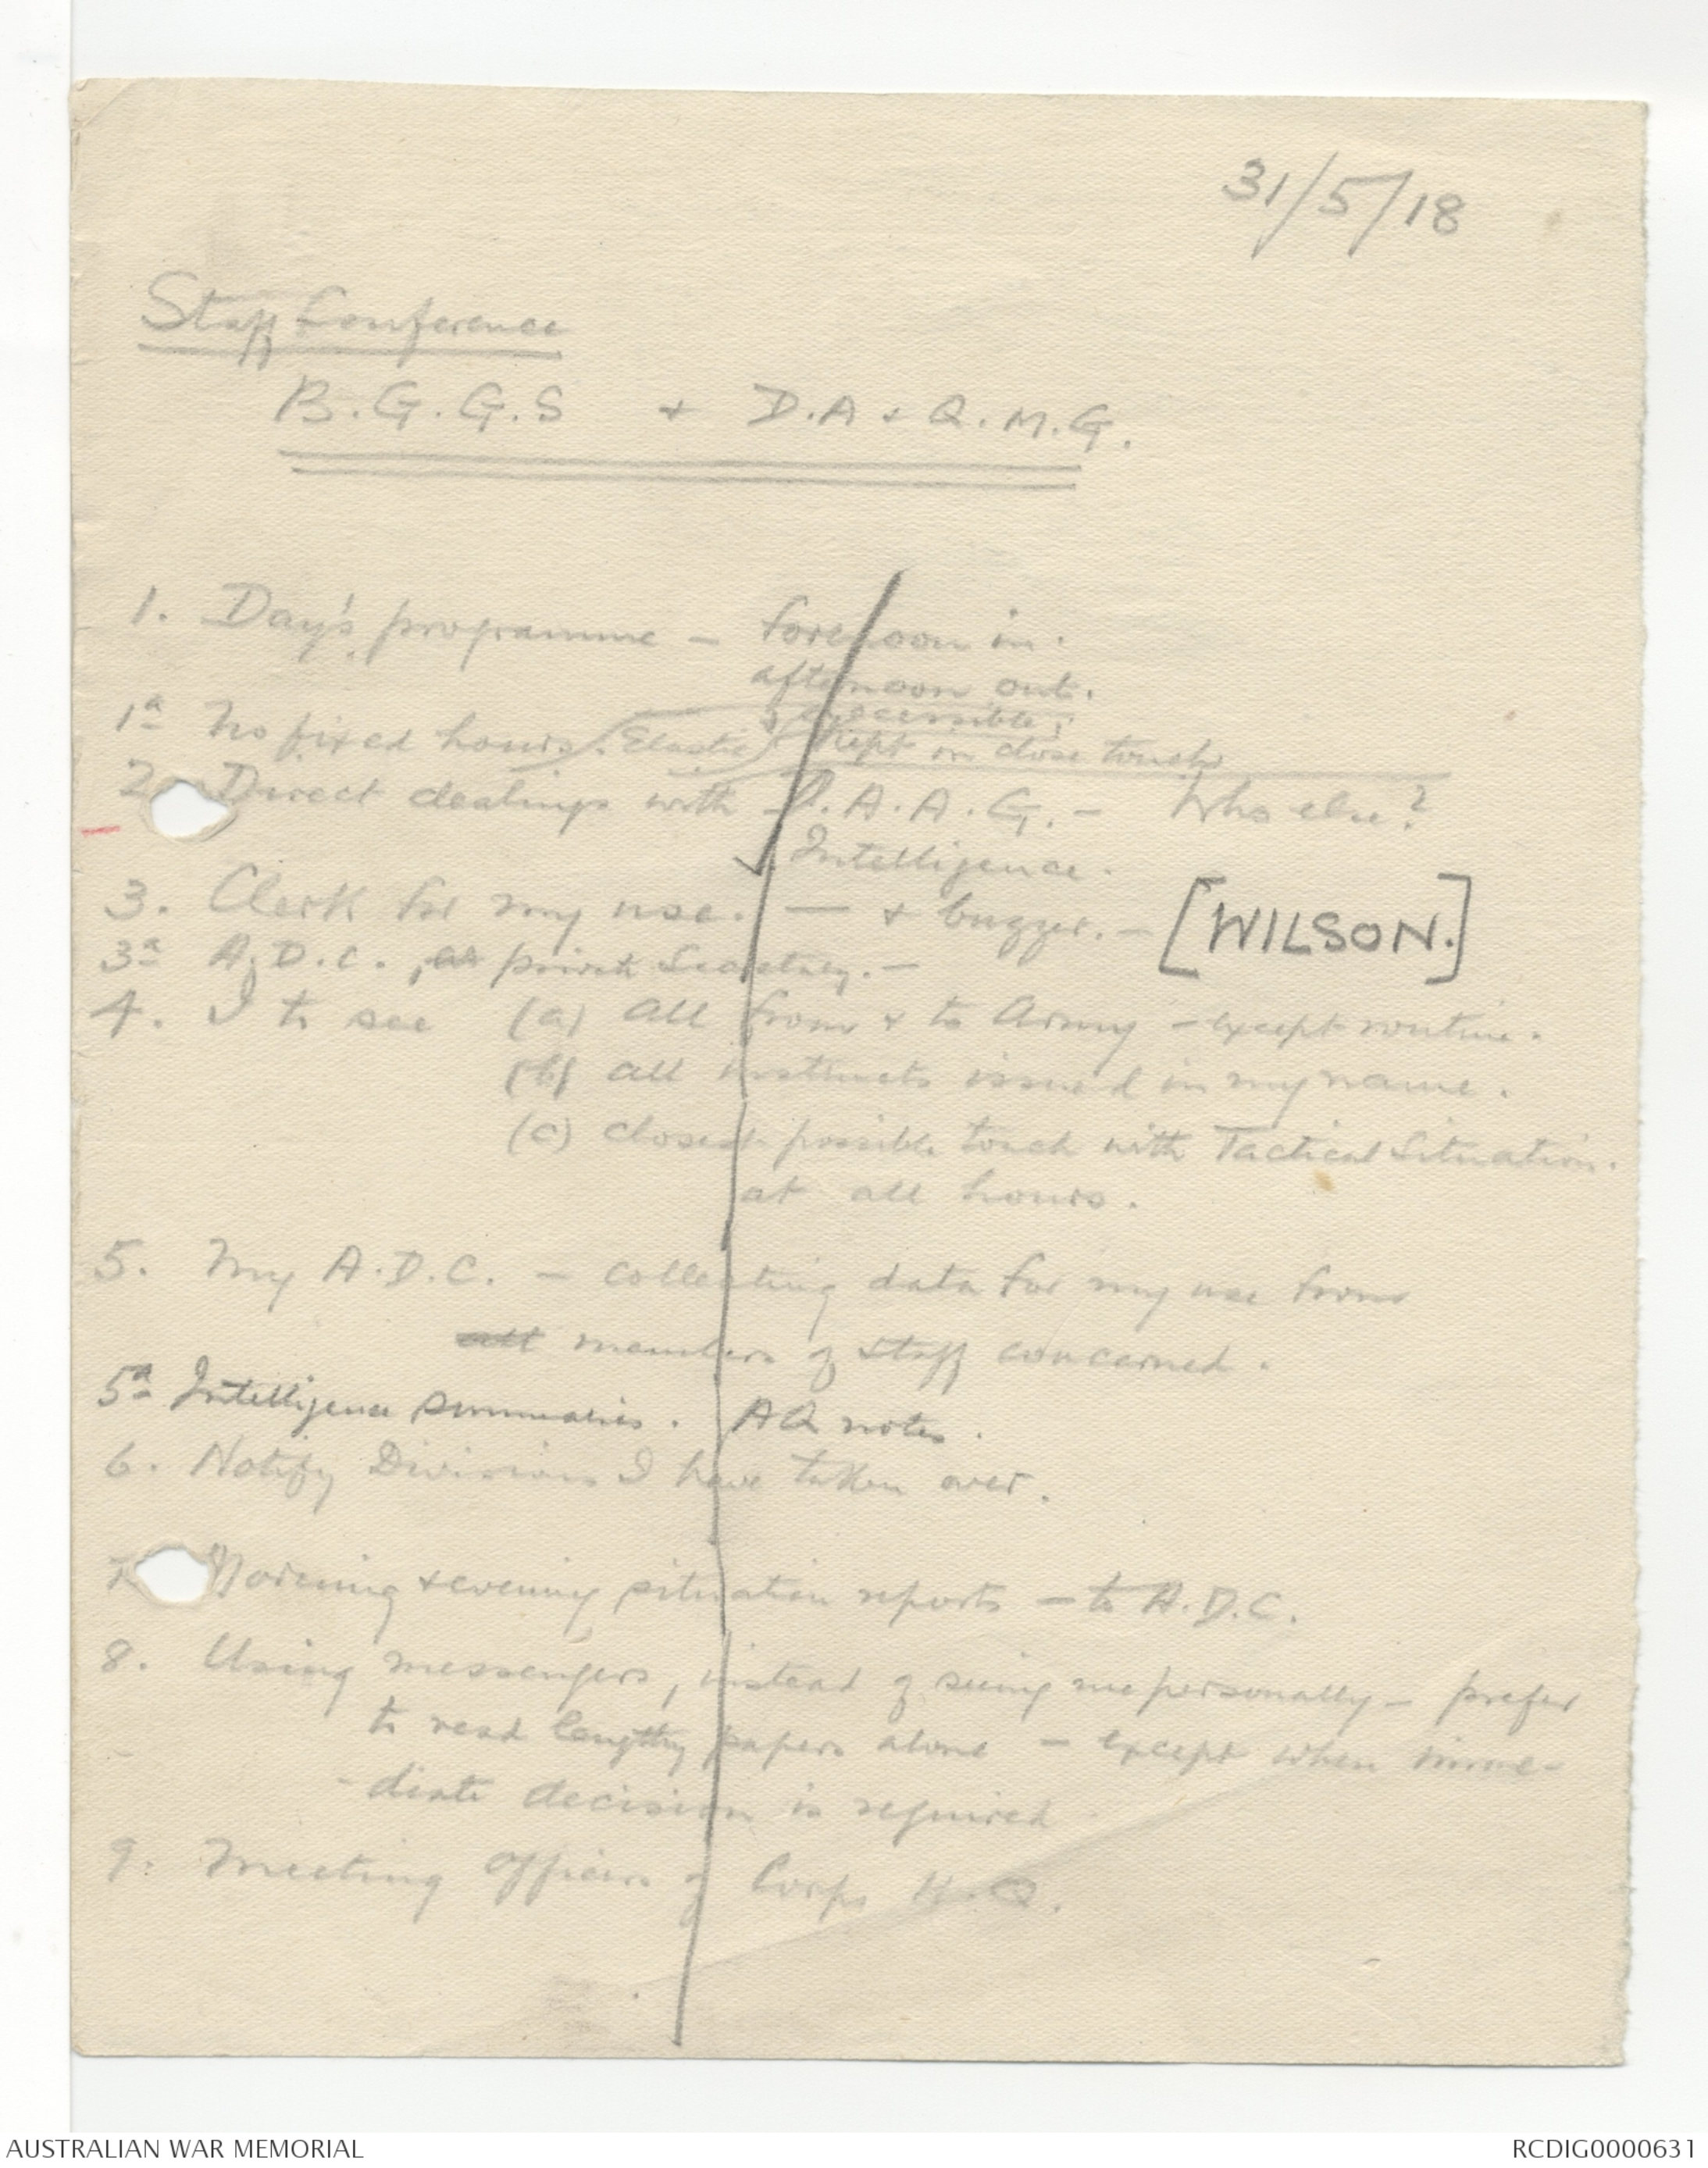 31/5/18
Staff Conference
B.G.G.S + D.A + Q.M.G.
1. Day's programme - forenoon in.
afternoon out.
1a No fixed hours. Elastic & accessible;
kept in close touch
2. Direct dealings with D.A.A.G. - Who else?
Intelligence.
3. Clerk for my use. — + buzzer. - [WILSON.]
3a A.D.C., as private Secretary. -
4. I to see (a) all from & to Army - except routine.
(b) all instructs issued in my name.
(c) closest possible touch with Tactical Situation.
at all hours.
5. My A.D.C. - collecting data for my use from
all members of staff concerned.
5a Intelligence summaries. AQ notes.
6. Notify Divisions I have taken over.
7. Morning & evening situation reports - to A.D.C.
8. Using messengers, instead of seeing me personally - prefer
to read lengthy papers alone - except when imme-
-diate decision is required
9. Meeting Officers of Corps H.Q.
AUSTRALIAN WAR MEMORIAL
RCDIG0000631